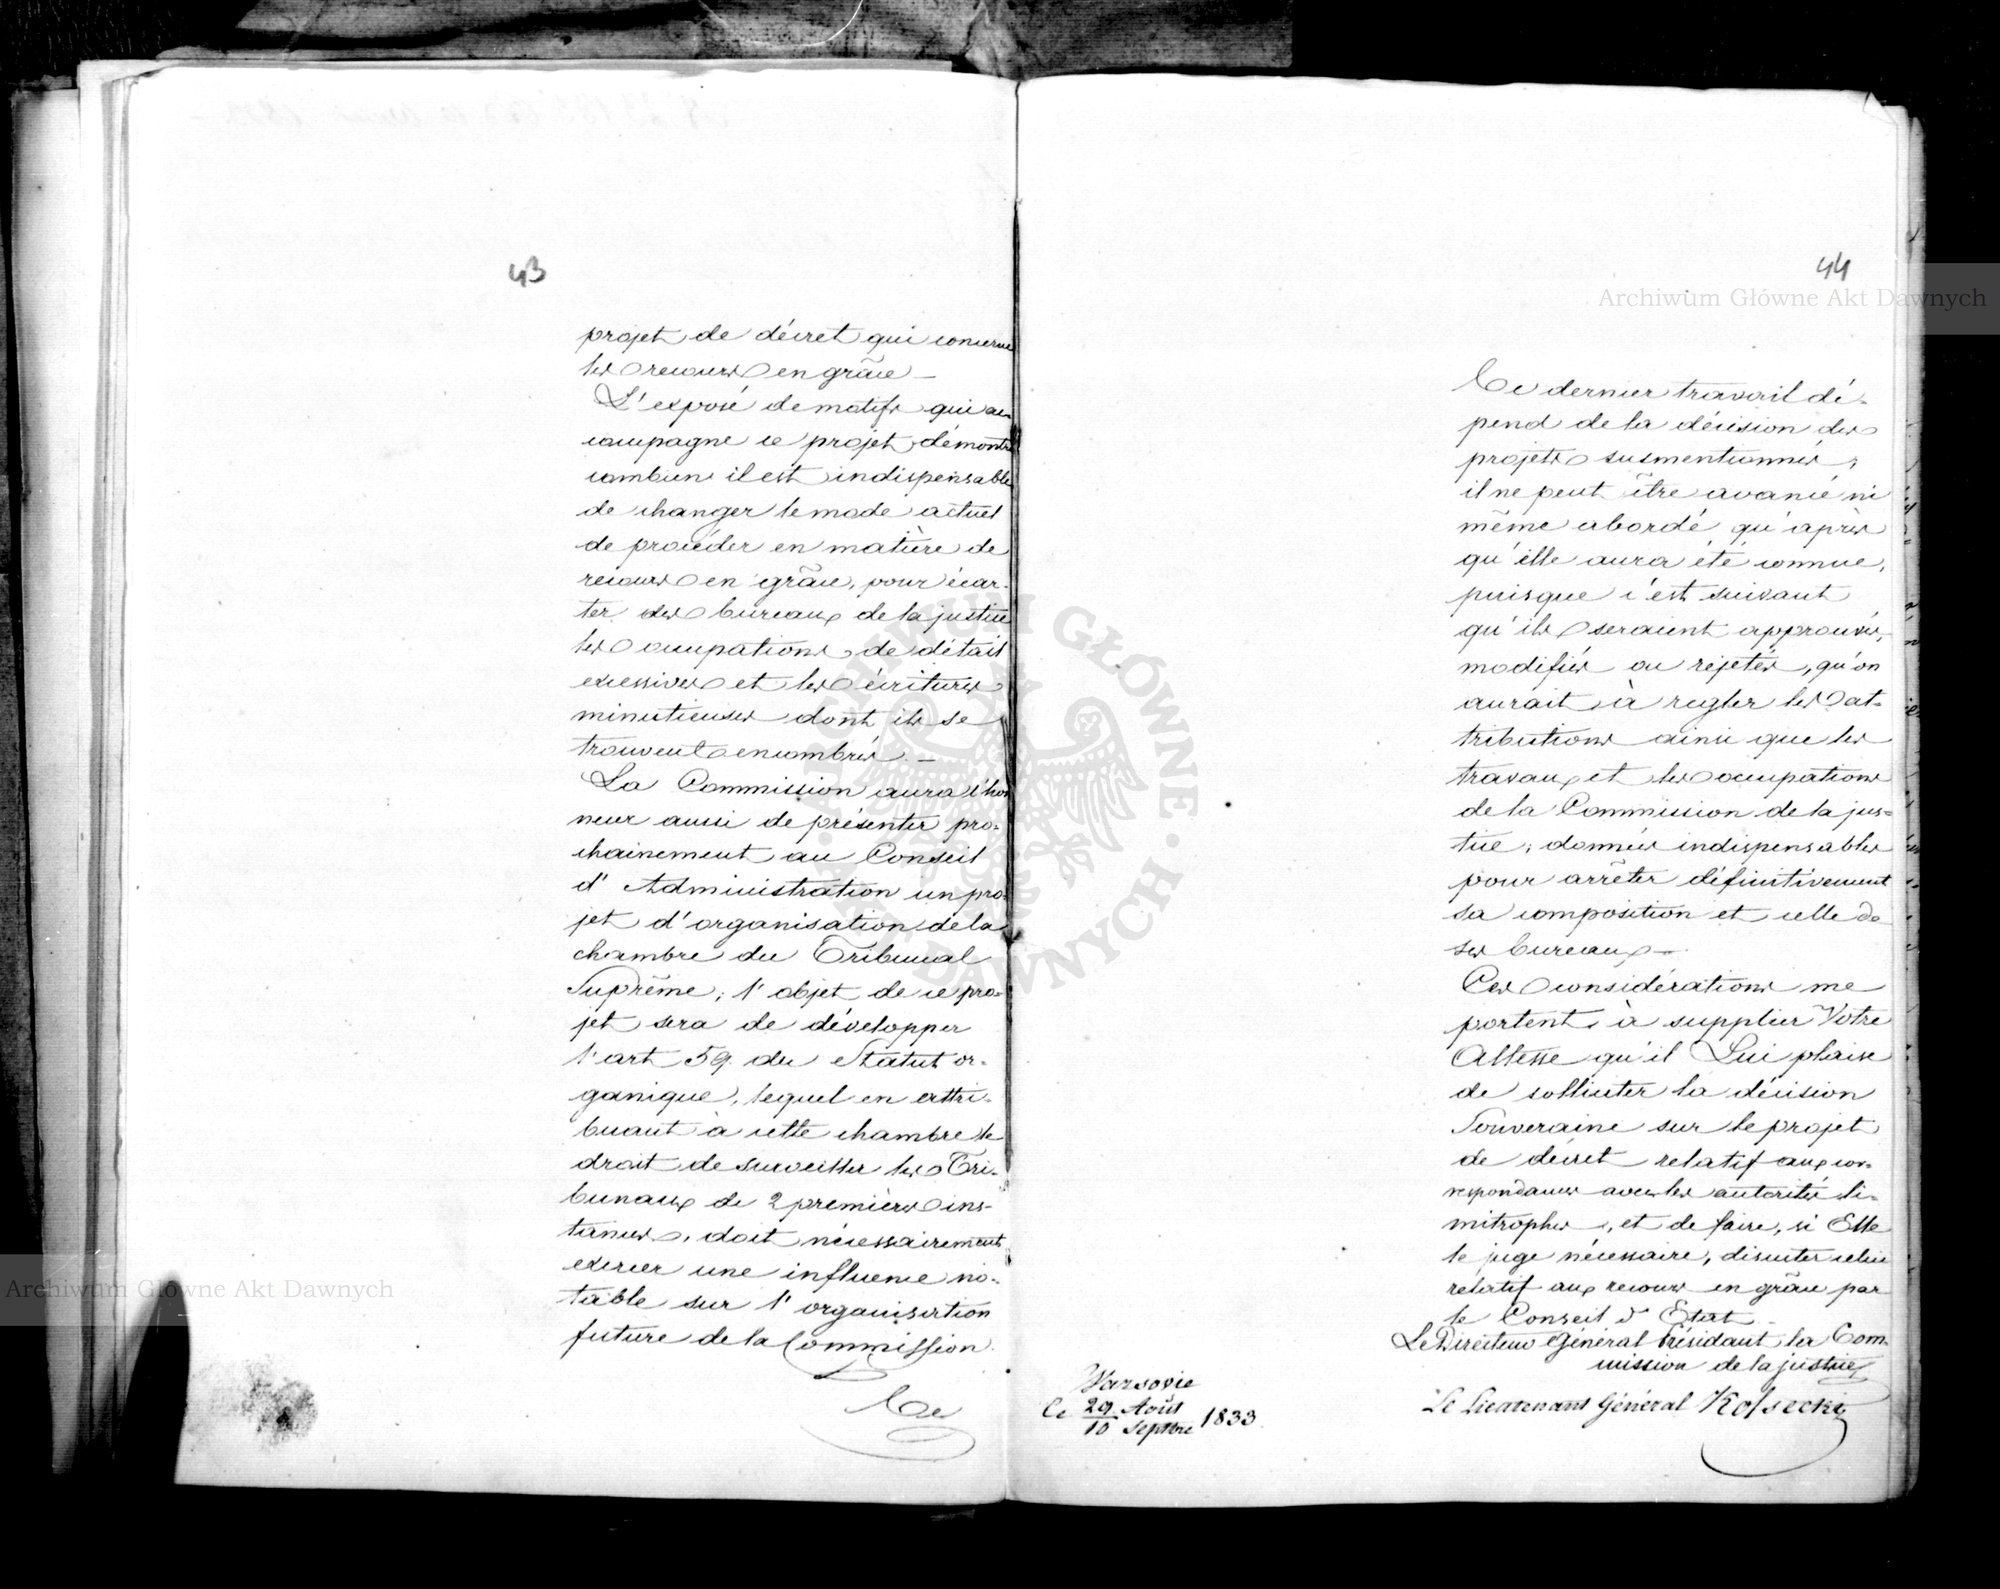 43
projet de décret qui concerne
les recours en grâce —
L'exposé de motifs qui ac-
compagne ce projet démontre
combien il est indispensable
de changer le mode actuel
de procéder en matière de
recours en grâce, pour écar-
ter des bureaux de la justice
les occupations de détail
excessives et les écritures
minutieuses dont ils se
trouvent encombrés. —
La Commission aura l'hon
neur aussi de présenter pro-
chainement au Conseil
d'Administration un pro-
jet d'organisation de la
chambre du Tribunal
Suprême; l'objet de ce pro-
jet sera de développer
l'art 59. du Statut or-
ganique, lequel en attri-
buant à cette chambre le
droit de surveiller les Tri-
bunaux de 2 premières ins-
tances, doit nécessairement
exercer une influence no-
table sur l'organisation
future de la Commission.
Ce
44
Ce dernier travail dé-
pend de la décision des
projets susmentionnés;
il ne peut être avancé ni
même abordé qu'après
qu'elle aura été connue,
puisque c'est suivant
qu'ils seraient approuvés,
modifiés ou rejetés, qu'on
aurait à regler les at-
tributions ainsi que les
travaux et les occupations
de la Commission de la jus-
tice; données indispensables
pour arrêter définitivement
sa composition et celle de
ses bureaux —
Ces considérations me
portent à supplier Votre
Altesse qu'il Lui plaise
de solliciter la décision
Souveraine sur le projet
de décret relatif aux cor-
respondances avec les autorités li-
mitrophes, et de faire, si Elle
le juge nécessaire, discuter celui
relatif aux recours en grâce par
le Conseil d'Etat —
Le Directeur Général Présidant la Com-
mission de la justice
Le Lieutenant Général Kossecki
Varsovie
le 29 Août / 10 Septbre 1833.
Archiwum Główne Akt Dawnych
Archiwum Główne Akt Dawnych
ARCHIWUM GŁÓWNE AKT DAWNYCH